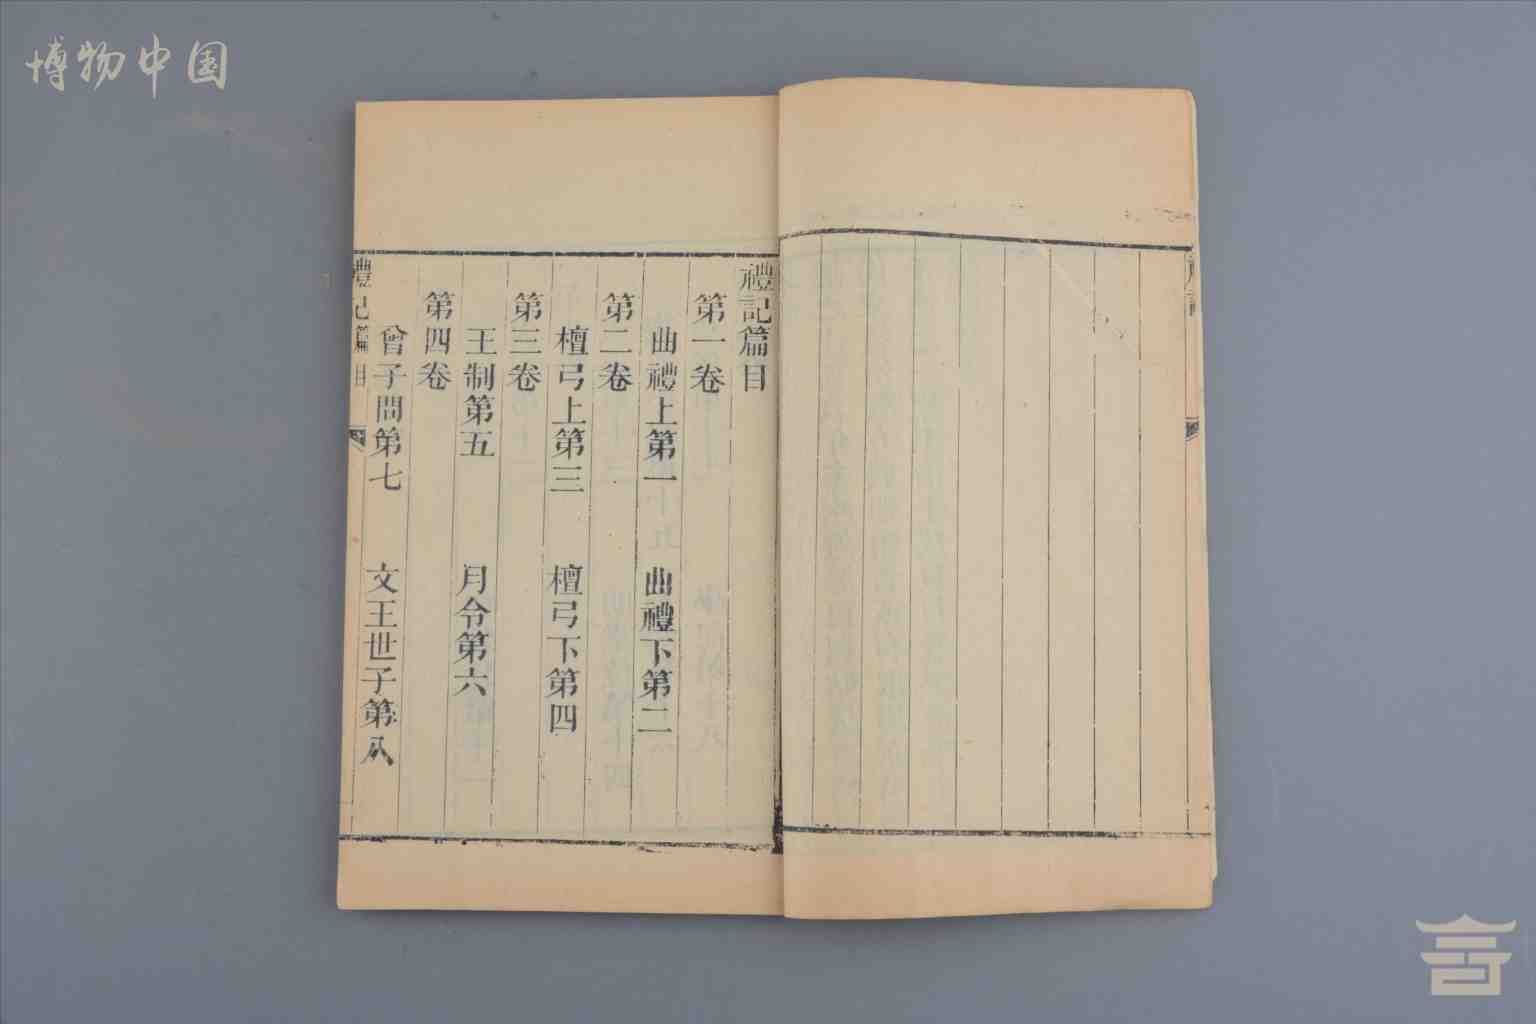 博物中国
禮記篇目
第一卷
曲禮上第一 曲禮下第二
第二卷
檀弓上第三 檀弓下第四
第三卷
王制第五 月令第六
第四卷
曾子問第七 文王世子第八
禮記篇目